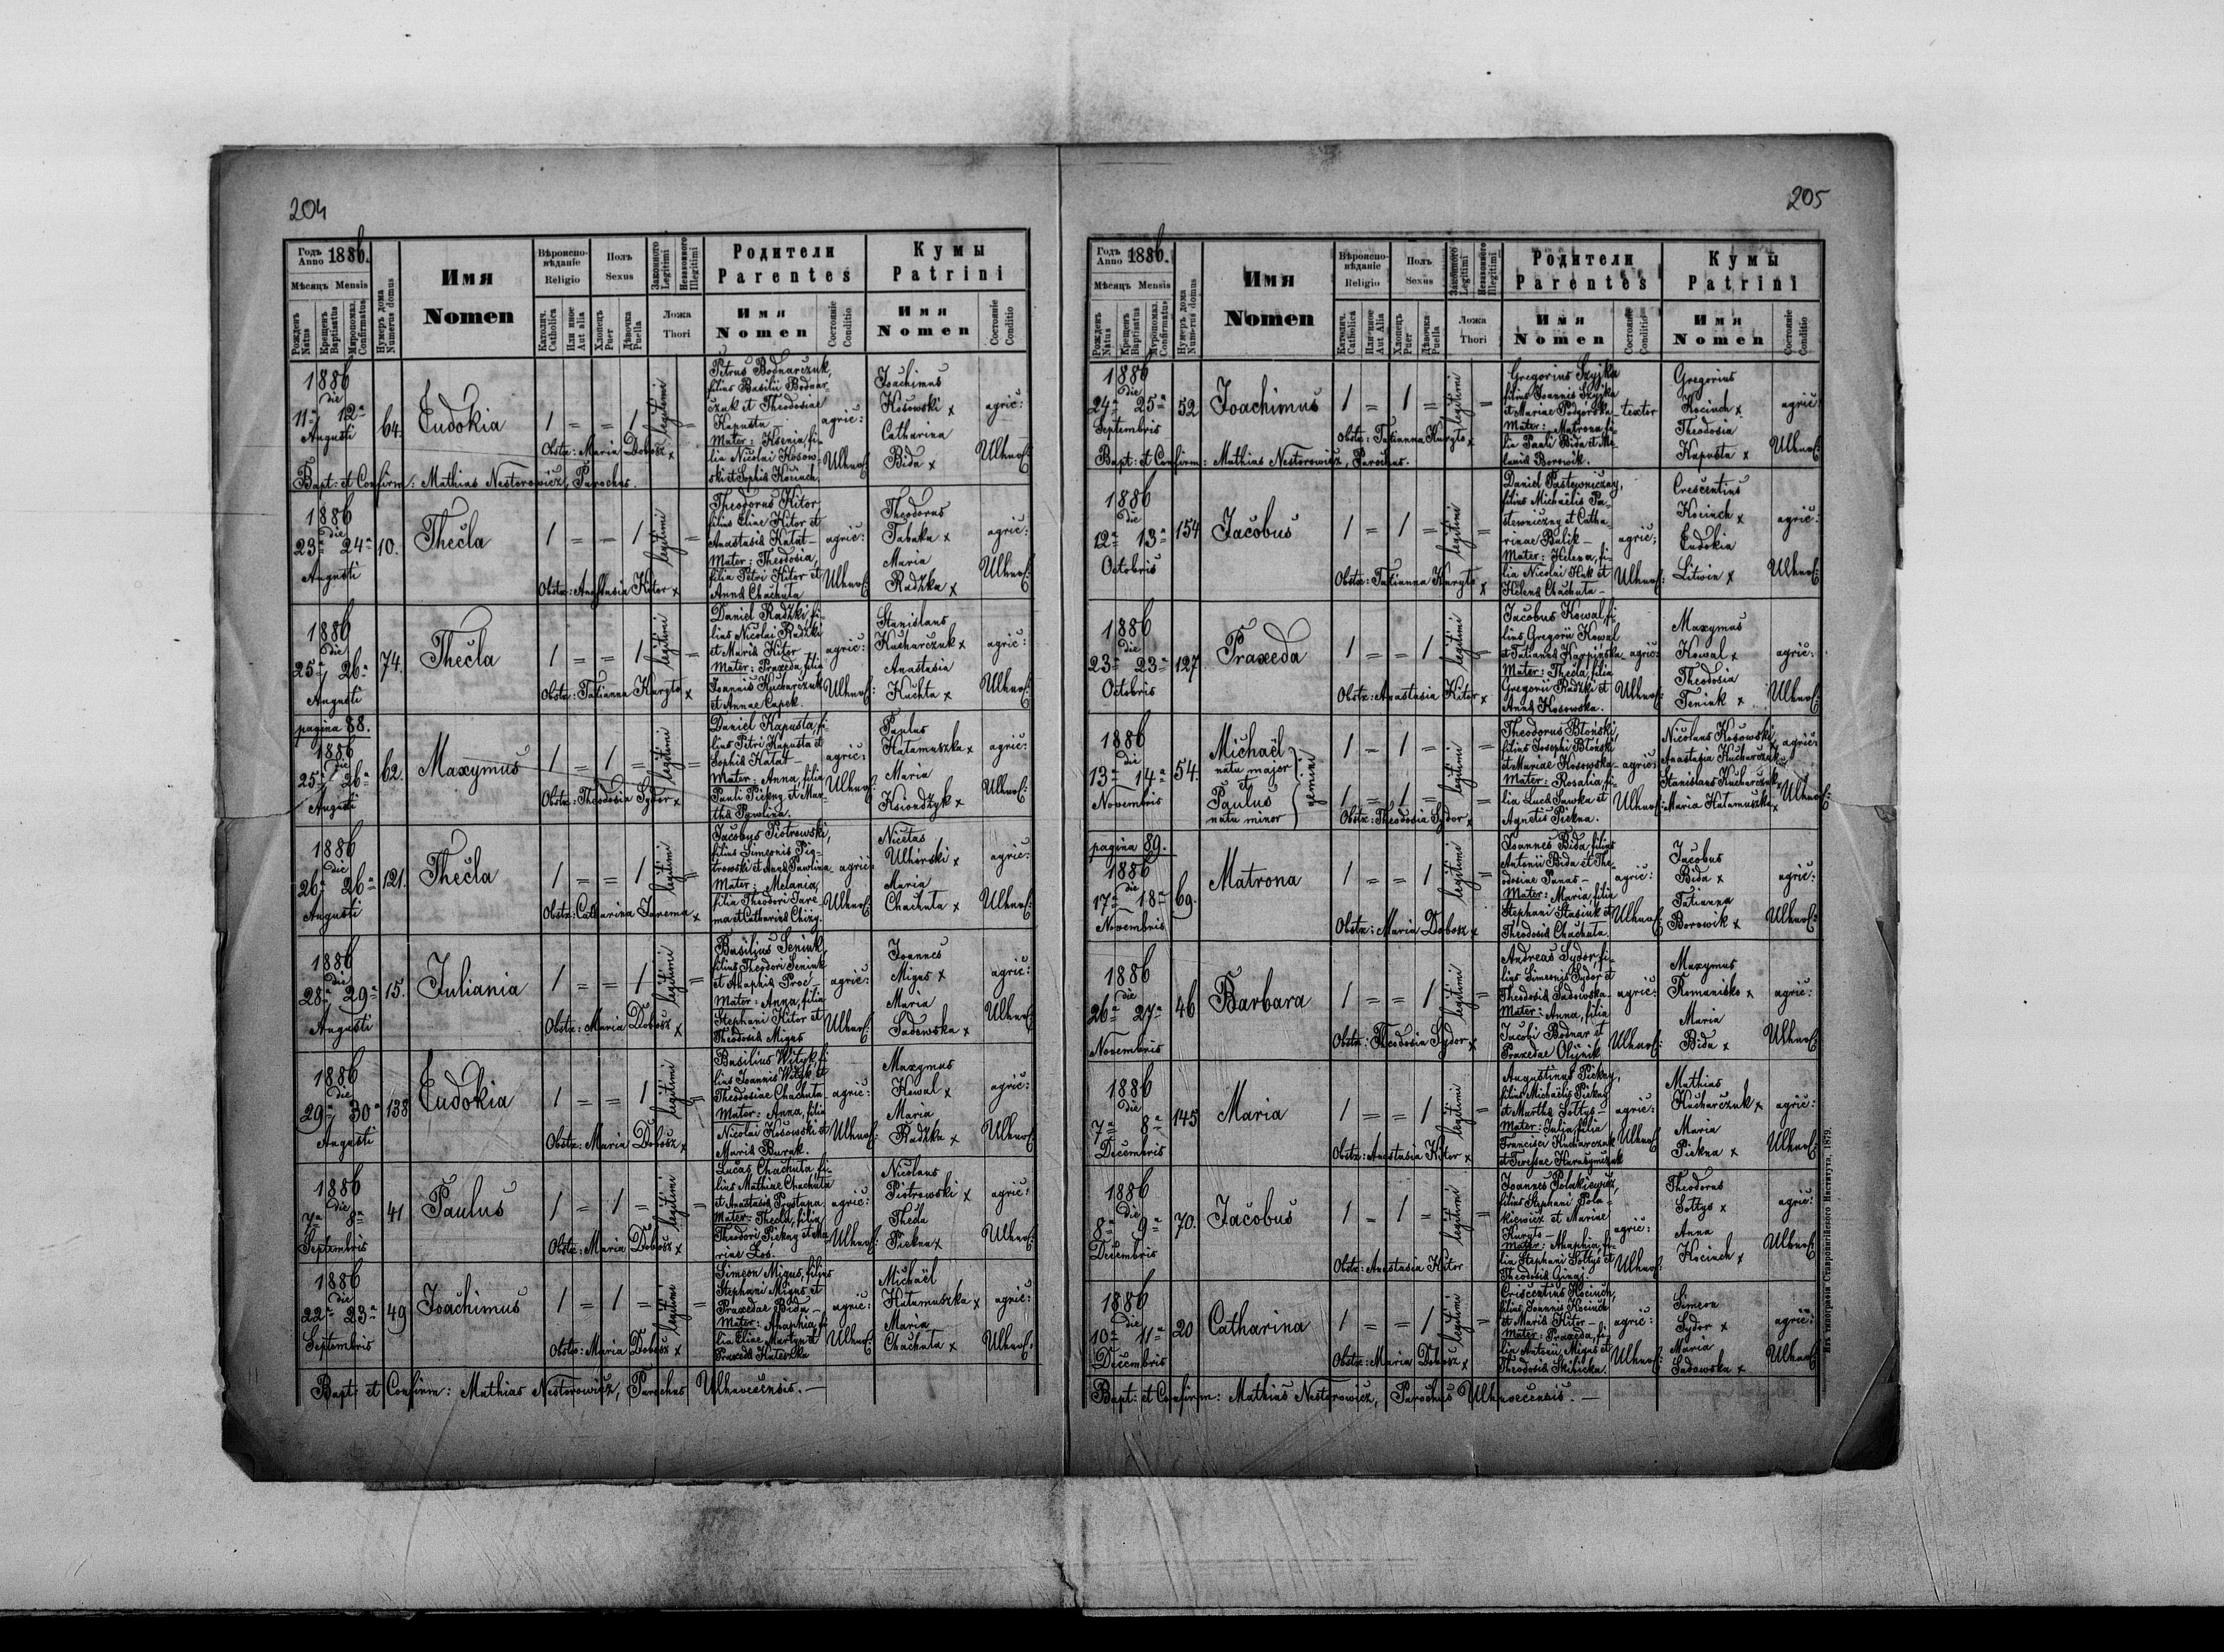 204
Годъ Anno 1886.
Мѣсяцъ Mensis
Рожденъ Natus
Крещенъ Baptisatus
Миропомаз. Confirmatus
Нумеръ дома Numerus domus
Имя
Nomen
Вѣроиспо-
вѣданіе
Religio
Католич. Catholica
Или иное Aut alia
Полъ
Sexus
Хлопецъ Puer
Дѣвочка Puella
Законного Legitimi
Незаконного Illegitimi
Ложа
Thori
Родители
Parentes
Имя
Nomen
Состояніе Conditio
Кумы
Patrini
Имя
Nomen
Состояніе Conditio
1886
die
11ª 12ª
Augusti
64.
Eudokia
1 = = 1 legitimi =
Obstx: Maria Dobosz x
Petrus Bodnarczuk,
filius Basilii Bodnar-
czuk et Theodosiae
Kapusta
Mater: Ksenia, fi-
lia Nicolai Kosow-
ski et Sophia Kociuch.
agric:
Ulhnoſ:
Joachimus
Kosowski x
Catharina
Bida x
agric:
Ulhnoſ:
Bapt: et Confirm: Mathias Nestorowicz, Parochus.
1886
die
23ª 24ª
Augusti
10.
Thecla
1 = = 1 legitimi =
Obstx: Anastasia Kitor x
Theodorus Kitor,
filius Eliae Kitor et
Anastasia Kałat-
Mater: Theodosia,
filia Petri Kitor et
Anna Chachuta
agric:
Ulhnoſ:
Theodorus
Tabaka x
Maria
Radzka x
agric:
Ulhnoſ:
1886
die
25ª 26ª
Augusti
74.
Thecla
1 = = 1 legitimi =
Obstx: Tatianna Kuryło x
Daniel Radzki, fi-
lius Nicolai Radzki
et Maria Kitor
Mater: Praxeda, filia
Joannis Kucharczuk
et Annae Capek.
agric:
Ulhnoſ:
Stanislaus
Kucharczuk x
Anastasia
Kuchta x
agric:
Ulhnoſ:
pagina 88.
1886
die
25ª 26ª
Augusti
62.
Maxymus
1 = 1 = legitimi =
Obstx: Theodosia Sydor x
Daniel Kapusta, fi-
lius Petri Kapusta et
Sophia Kałat-
Mater: Anna, filia
Pauli Piekny et Mar-
tha Pawlina.
agric:
Ulhnoſ:
Paulus
Hatamuszka x
Maria
Ksiondzyk x
agric:
Ulhnoſ:
1886
die
26ª 26ª
Augusti
121.
Thecla
1 = = 1 legitimi =
Obstx: Catharina Jarema x
Jacobus Piotrowski,
filius Simeonis Pio-
trowski et Anna Pawlina
Mater: Melania,
filia Theodori Jare-
ma et Catharina
agric:
Ulhnoſ:
Nicetas
Ulhórski x
Maria
Chachuta x
agric:
Ulhnoſ:
1886
die
28ª 29ª
Augusti
15.
Juliania
1 = = 1 legitimi =
Obstx: Maria Dobosz x
Basilius Seniuk,
filius Theodori Seniuk
et Ahaphia Proć-
Mater: Anna, filia
Stephani Kitor et
Theodosia Migus
agric:
Ulhnoſ:
Joannes
Migus x
Maria
Sadowska x
agric:
Ulhnoſ:
1886
die
29ª 30ª
Augusti
138
Eudokia
1 = = 1 legitimi =
Obstx: Maria Dobosz x
Basilius Wityk, fi-
lius Joannis Wityk et
Theodosiae Chachuta
Mater: Anna, filia
Nicolai Kosowski et
Maria Burak.
agric:
Ulhnoſ:
Maxymus
Kowal x
Maria
Radzka x
agric:
Ulhnoſ:
1886
die
7ª 8ª
Septembris
41
Paulus
1 = 1 = legitimi =
Obstx: Maria Dobosz x
Lucas Chachuta, fi-
lius Mathiae Chachuta
et Anastasia Prystupa.
Mater: Thecla, filia
Theodori Piekny et Ma-
riae Los.
agric:
Ulhnoſ:
Nicolaus
Piotrowski x
Thecla
Piekna x
agric:
Ulhnoſ:
1886
die
22ª 23ª
Septembris
49
Joachimus
1 = 1 = legitimi =
Obstx: Maria Dobosz x
Simeon Migus, filius
Stephani Migus et
Praxedae Bida-
Mater: Ahaphia, fi-
lia Eliae Martyn et
Praxeda
agric:
Ulhnoſ:
Michaël
Hatamuszka x
Maria
Chachuta x
agric:
Ulhnoſ:
Bapt: et Confirm: Mathias Nestorowicz, Parochus Ulhnovecensis. —
205
Годъ Anno 1886.
Мѣсяцъ Mensis
Рожденъ Natus
Крещенъ Baptisatus
Мѵропомаз. Confirmatus
Нумеръ дома Numerus domus
Имя
Nomen
Вѣроиспо-
вѣданіе
Religio
Католич. Catholica
Или иное Aut Alia
Полъ
Sexus
Хлопецъ Puer
Дѣвочка Puella
Законного Legitimi
Незаконного Illegitimi
Ложа
Thori
Родители
Parentes
Имя
Nomen
Состояніе Conditio
Кумы
Patrini
Имя
Nomen
Состояніе Conditio
1886
die
24ª 25ª
Septembris
52
Joachimus
1 = 1 = legitimi =
Obstx: Tatianna Kuryło x
Gregorius Szyjka
filius Joannis Szyjka
et Mariae Podgórska-
Mater: Matrona, fi-
lia Pauli Bida et Me-
lania Borowik.
textor
Gregorius
Kociuch x
Theodosia
Kapusta x
agric:
Ulhnoſ:
Bapt: et Confirm: Mathias Nestorowicz, Parochus.
1886
die
12ª 13ª
Octobris
154
Jacobus
1 = 1 = legitimi =
Obstx: Tatianna Kuryło x
Daniel Pastewniczny,
filius Michaëlis Pa-
stewniczny et Catha-
rinae Bulik-
Mater: Helena, fi-
lia Nicolai Huk et
Helena Chachuta-
agric:
Ulhnoſ:
Crescentius
Kociuch x
Eudokia
Litwin x
agric:
Ulhnoſ:
1886
die
23ª 23ª
Octobris
127
Praxeda
1 = = 1 legitimi =
Obstx: Anastasia Kitor x
Jacobus Kowal, fi-
lius Gregorii Kowal
et Tatianna Karpinska
Mater: Thecla, filia
Gregorii Radzki et
Anna Kosowska.
agric:
Ulhnoſ:
Maxymus
Kowal x
Theodosia
Seniuk x
agric:
Ulhnoſ:
1886
die
13ª 14ª
Novembris
54.
Michaël
natu major
et
Paulus
natu minor
gemini
1 = 1 = legitimi =
1 = 1 = legitimi =
Obstx: Theodosia Sydor x
Theodorus Błoński,
filius Josephi Błoński
et Mariae Kosowska-
Mater: Rosalia, fi-
lia Luca Sawka et
Agnetis Piekna.
agric:
Ulhnoſ:
Nicolaus Kosowski x
Anastasia Kucharczuk x
Stanislaus Kucharczuk x
Maria Hatamuszka x
agric:
Ulhnoſ:
pagina 89.
1886
die
17ª 18ª
Novembris
69.
Matrona
1 = = 1 legitimi =
Obstx: Maria Dobosz x
Joannes Bida, filius
Antonii Bida et The-
odosiae Panas-
Mater: Maria, filia
Stephani Stasiuk et
Theodosia Chachuta.
agric:
Ulhnoſ:
Jacobus
Bida x
Tatianna
Borowik x
agric:
Ulhnoſ:
1886
die
26ª 27ª
Novembris
46
Barbara
1 = = 1 legitimi =
Obstx: Theodosia Sydor x
Andreas Sydor, fi-
lius Simeonis Sydor et
Theodosia Sadowska-
Mater: Anna, filia
Jacobi Bodnar et
Praxedae Olijnik.
agric:
Ulhnoſ:
Maxymus
Romanisko x
Maria
Bida x
agric:
Ulhnoſ:
1886
die
7ª 8ª
Decembris
145
Maria
1 = = 1 legitimi =
Obstx: Anastasia Kitor x
Augustinus Piekny,
filius Michaëlis Piekny
et Martha Sołtys-
Mater: Julia, filia
Francisci Kucharczuk
et Teressae Harasymczuk
agric:
Ulhnoſ:
Mathias
Kucharczuk x
Maria
Piekna x
agric:
Ulhnoſ:
1886
die
8ª 9ª
Decembris
70.
Jacobus
1 = 1 = legitimi =
Obstx: Anastasia Kitor
Joannes Polakiewicz,
filius Stephani Pola-
kiewicz et Mariae
Kuryło-
Mater: Ahaphia, fi-
lia Stephani Sołtys et
Theodosia
agric:
Ulhnoſ:
Theodorus
Sołtys x
Anna
Kociuch x
agric:
Ulhnoſ:
1886
die
10ª 11ª
Decembris
20
Catharina
1 = = 1 legitimi =
Obstx: Maria Dobosz x
Criscentius Kociuch,
filius Joannis Kociuch
et Maria Kitor-
Mater: Praxeda, fi-
lia Antonii Migus et
Theodosia Skibicka.
agric:
Ulhnoſ:
Simeon
Sydor x
Maria
Sadowska x
agric:
Ulhnoſ:
Bapt: et Confirm: Mathias Nestorowicz, Parochus Ulhnovecensis. —
Изъ типографіи Ставропигійского Института, 1879.